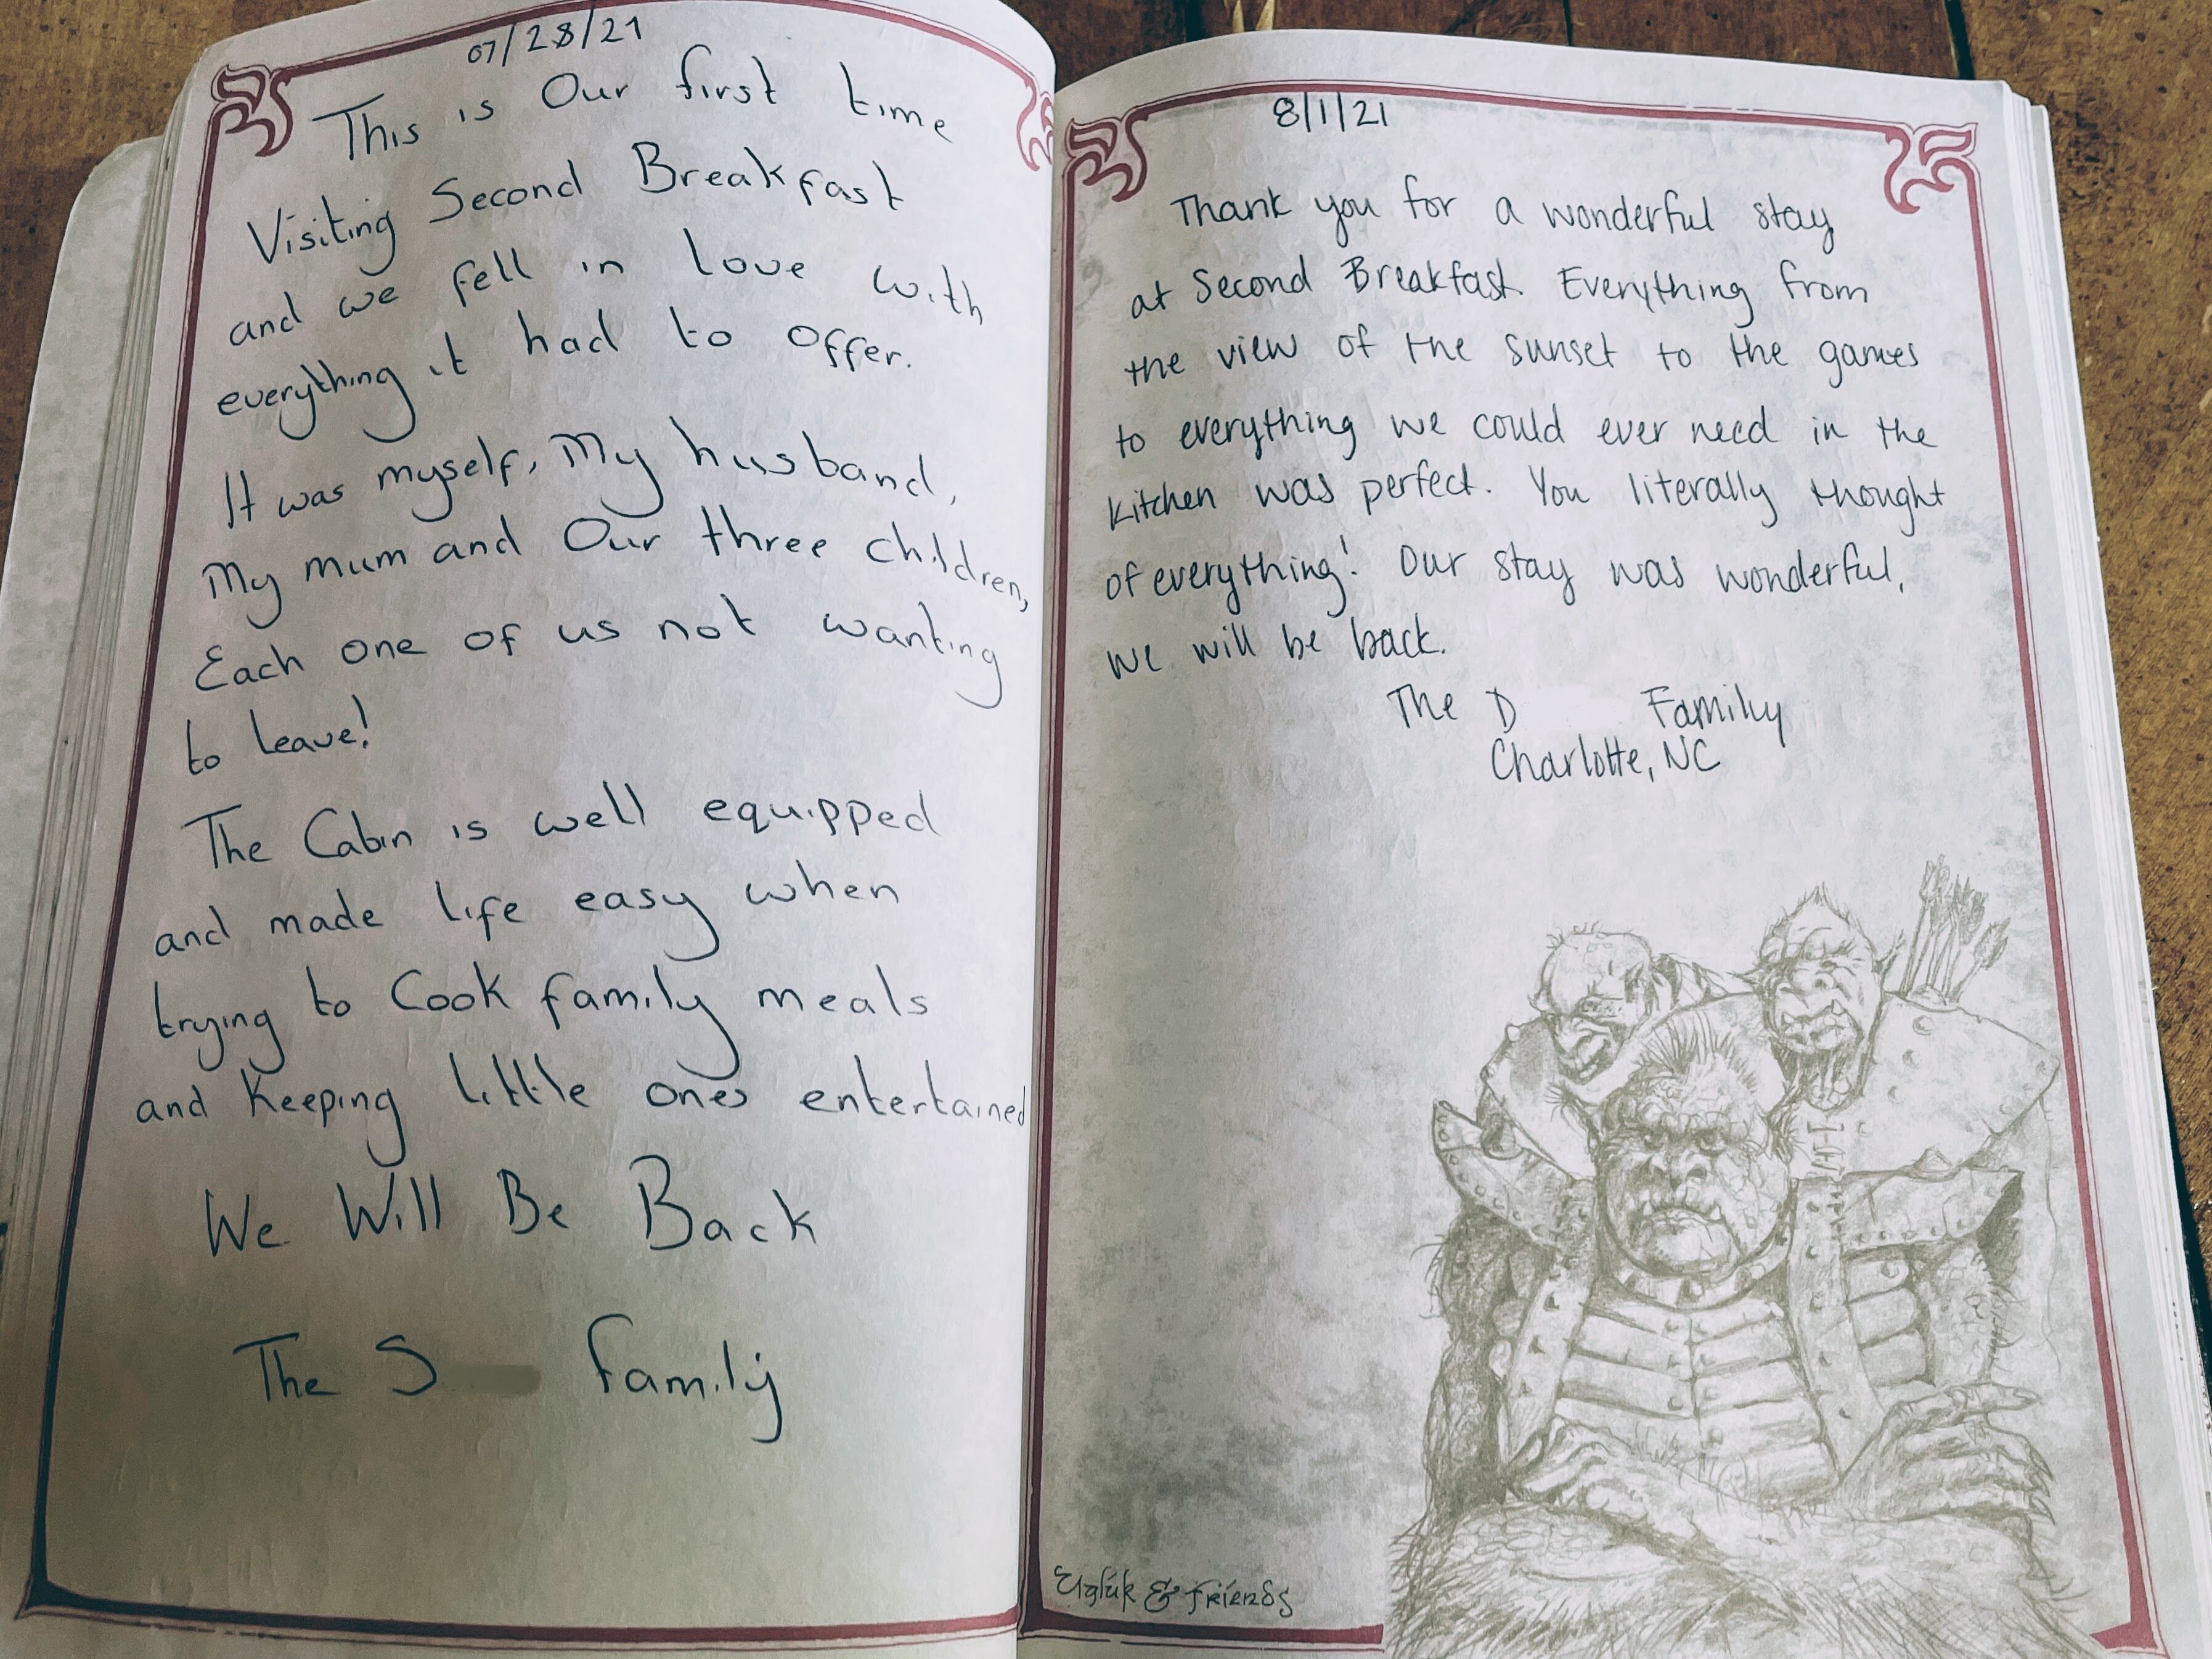 07/28/21
This is Our first time
Visiting Second Breakfast
and we fell in love with
everything it had to offer.
It was myself, My husband,
My mum and Our three children,
Each one of us not wanting
to leave!
The Cabin is well equipped
and made life easy when
trying to Cook family meals
and keeping little ones entertained
We Will Be Back
The S family
8/1/21
Thank you for a wonderful stay
at Second Breakfast. Everything from
the view of the sunset to the games
to everything we could ever need in the
kitchen was perfect. You literally thought
of everything! Our stay was wonderful,
we will be back.
The D Family
Charlotte, NC
Uglúk & Friends